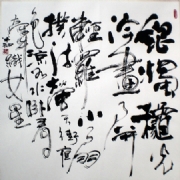 銀燭龝光
冷畫屏
輕羅小扇
撲流螢
色涼如水卧看
牽牛織女星